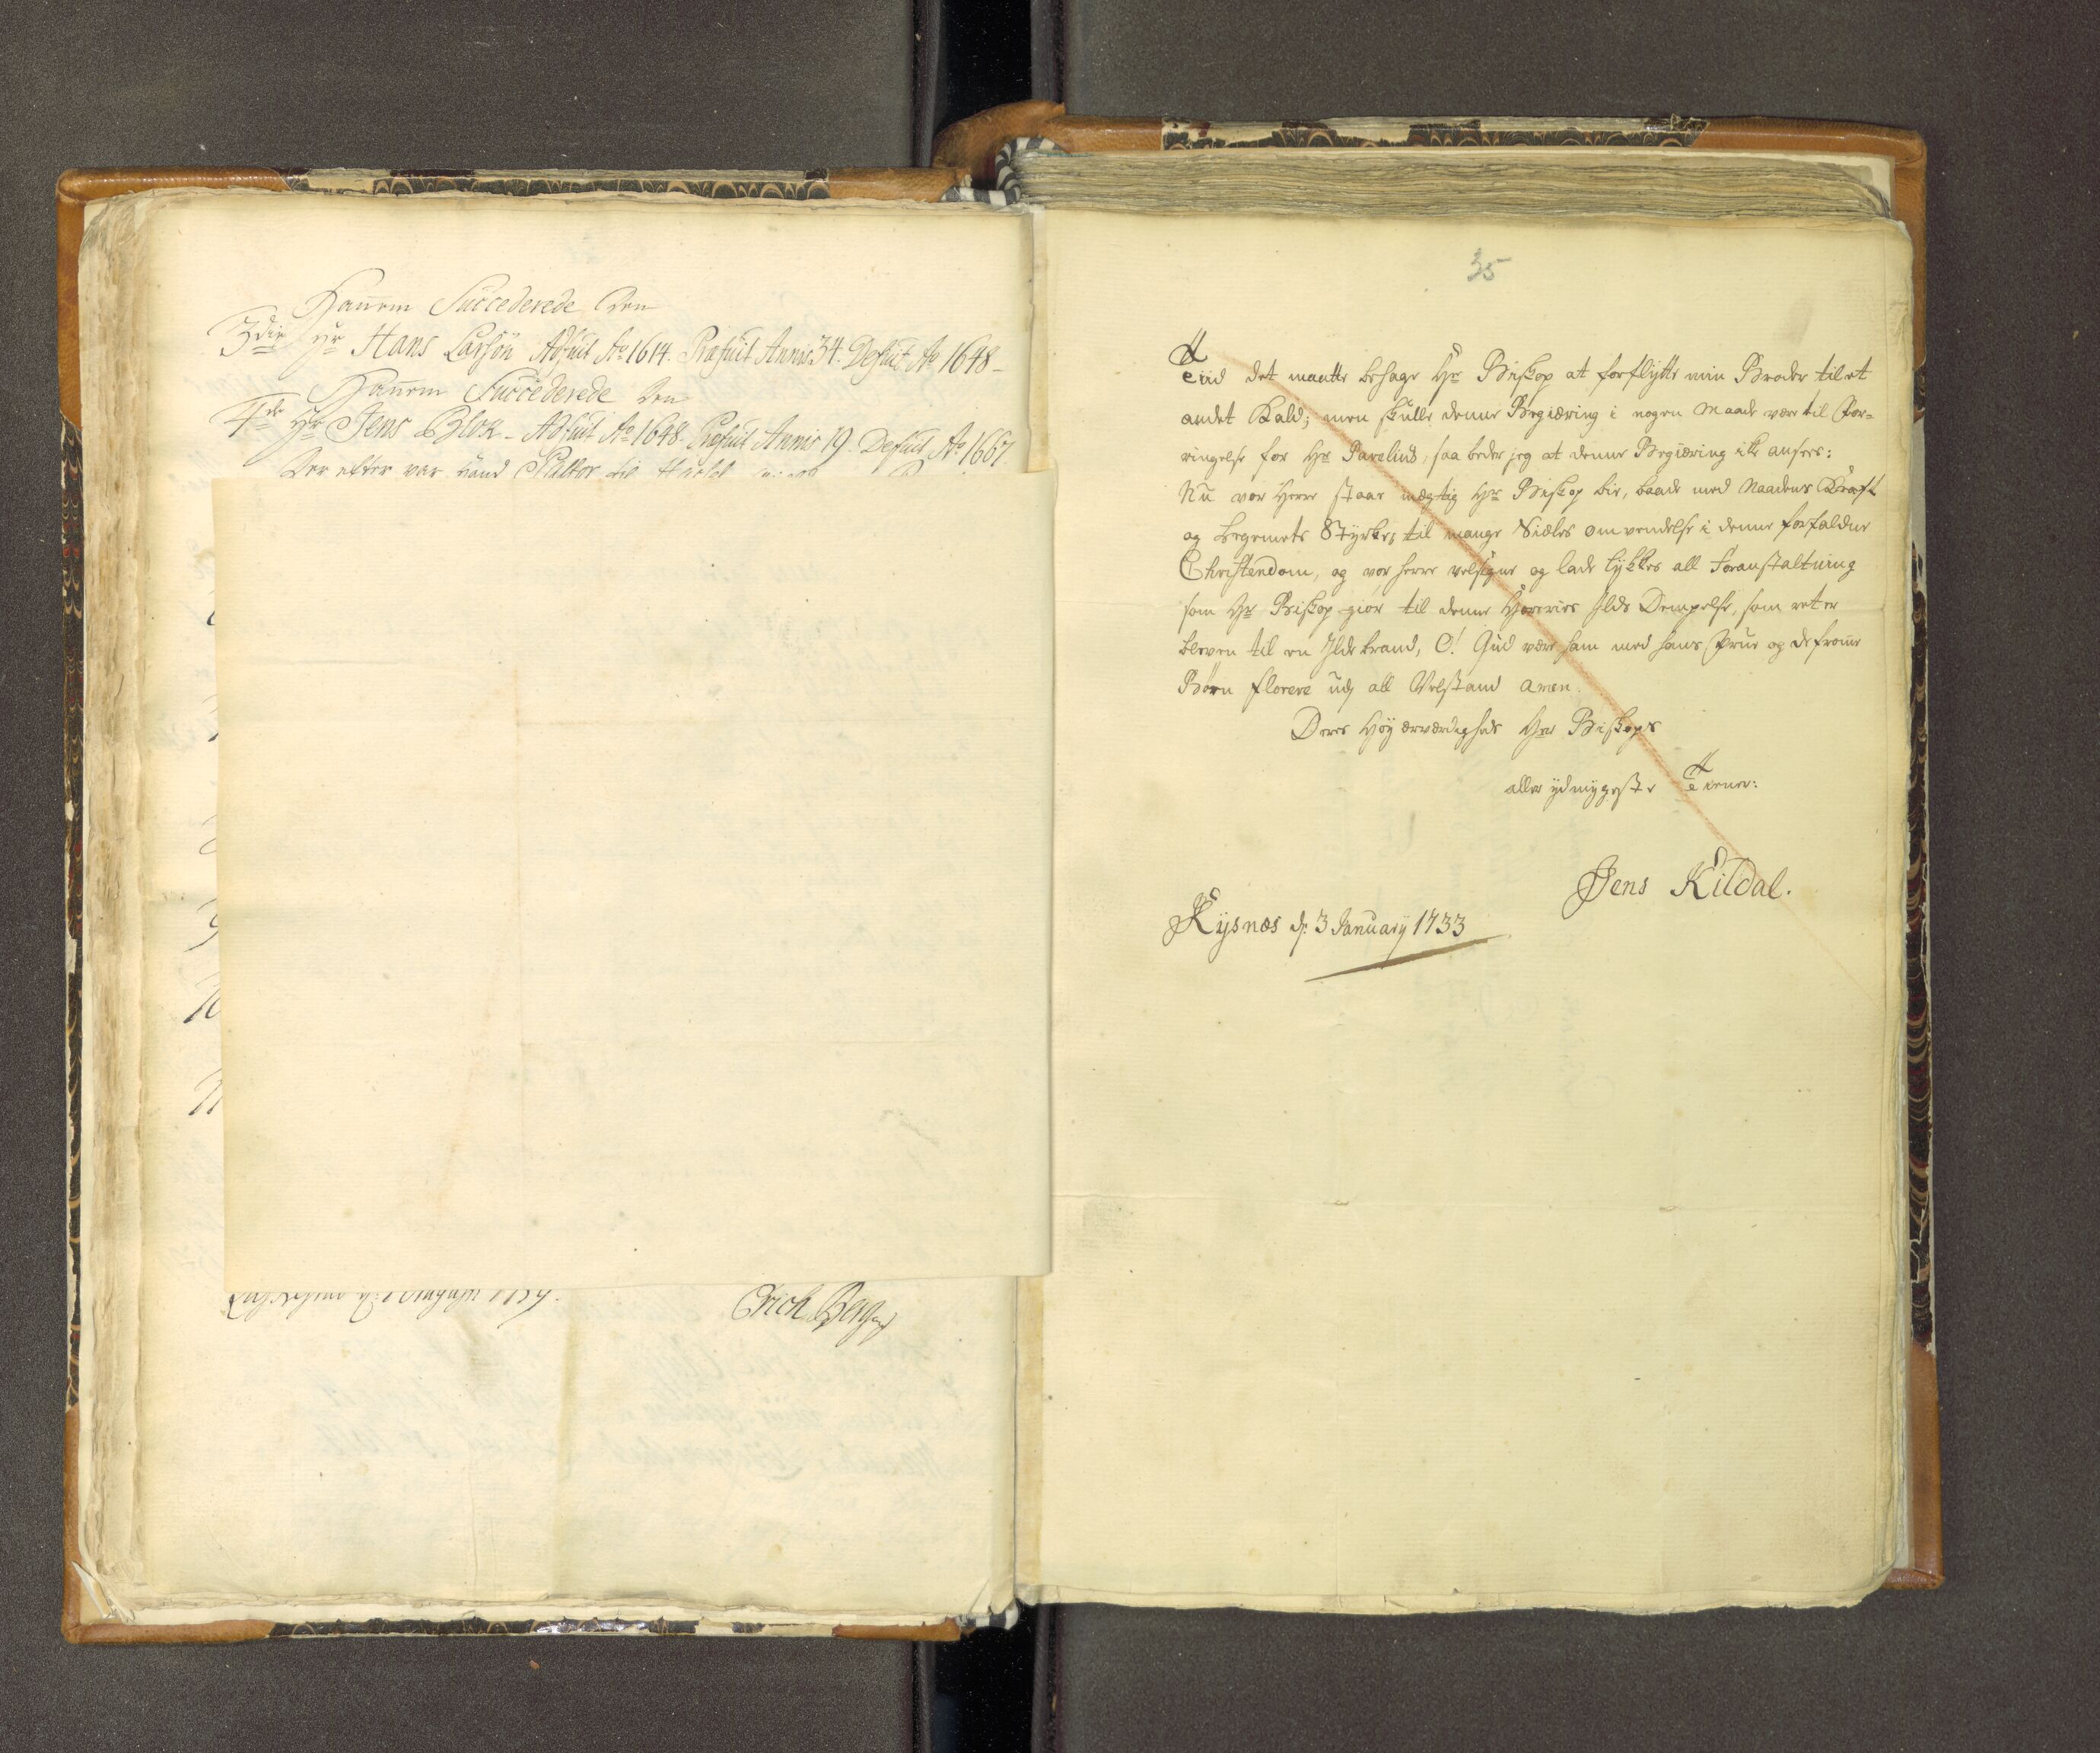 Hannem Succederede Den
3die Hr Hans Larsön Adfuit Ao 1614. Præfuit Annis 34. Defuit Ao 1648 –
Hannem Succederede Den
4de Hr Jens Blok – Adfuit Ao 1648. Præfuit Annis 19. Defuit Ao 1667.
Der efter var Hand Pastor til
Erich Berg
35
det maatte behage Hr Biskop at forflÿtte min Broder til et
andet Kald; men skulle denne Begiæring i nogen Maade være til For=
ringelse for Hr Parelius, saa beder jeg at denne Begiæring ikke ansees:
Nu vor Herre staae mægtig Hr Biskop bie, baade med Naadens Kraft
og Legemets Styrke, til mange Siæles omvendelse i denne forfaldne
Christendom, og vor herre velsigne og lade lÿkkes all foranstaltning
som Hr Biskop giør til denne Ilds Dempelse, som ret er
bleven til en Ildebrand, O! Gud være ham med hans Frue og de fromme
Børn florere udj all Velstand Amen.
Deres Höÿærværdigheds Her Biskops
aller ÿdmygeste Tienner:
Jens Kildal.
Kysnæs d. 3 Januarÿ 1733